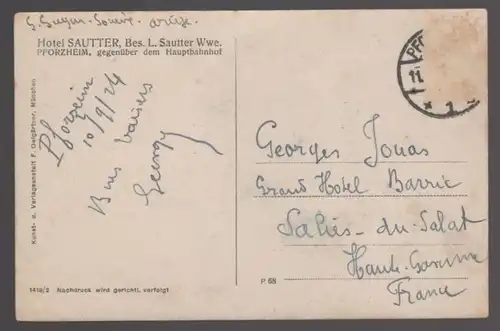 Hotel SAUTTER, Bes. L. Sautter Wwe.
PFORZHEIM, gegenüber dem Hauptbahnhof
Pforzeim
10/9/24
Bons baisers
Georges
Kunst- u. Verlagsanstalt F. Deigärtner, München
1410/2 Nachdruck wird gerichtl. verfolgt
P 68
PF
11.
* 1 *
Georges Jouas
Grand Hotel Barrie
Salies-du-Salat
Haute-Garonne
France